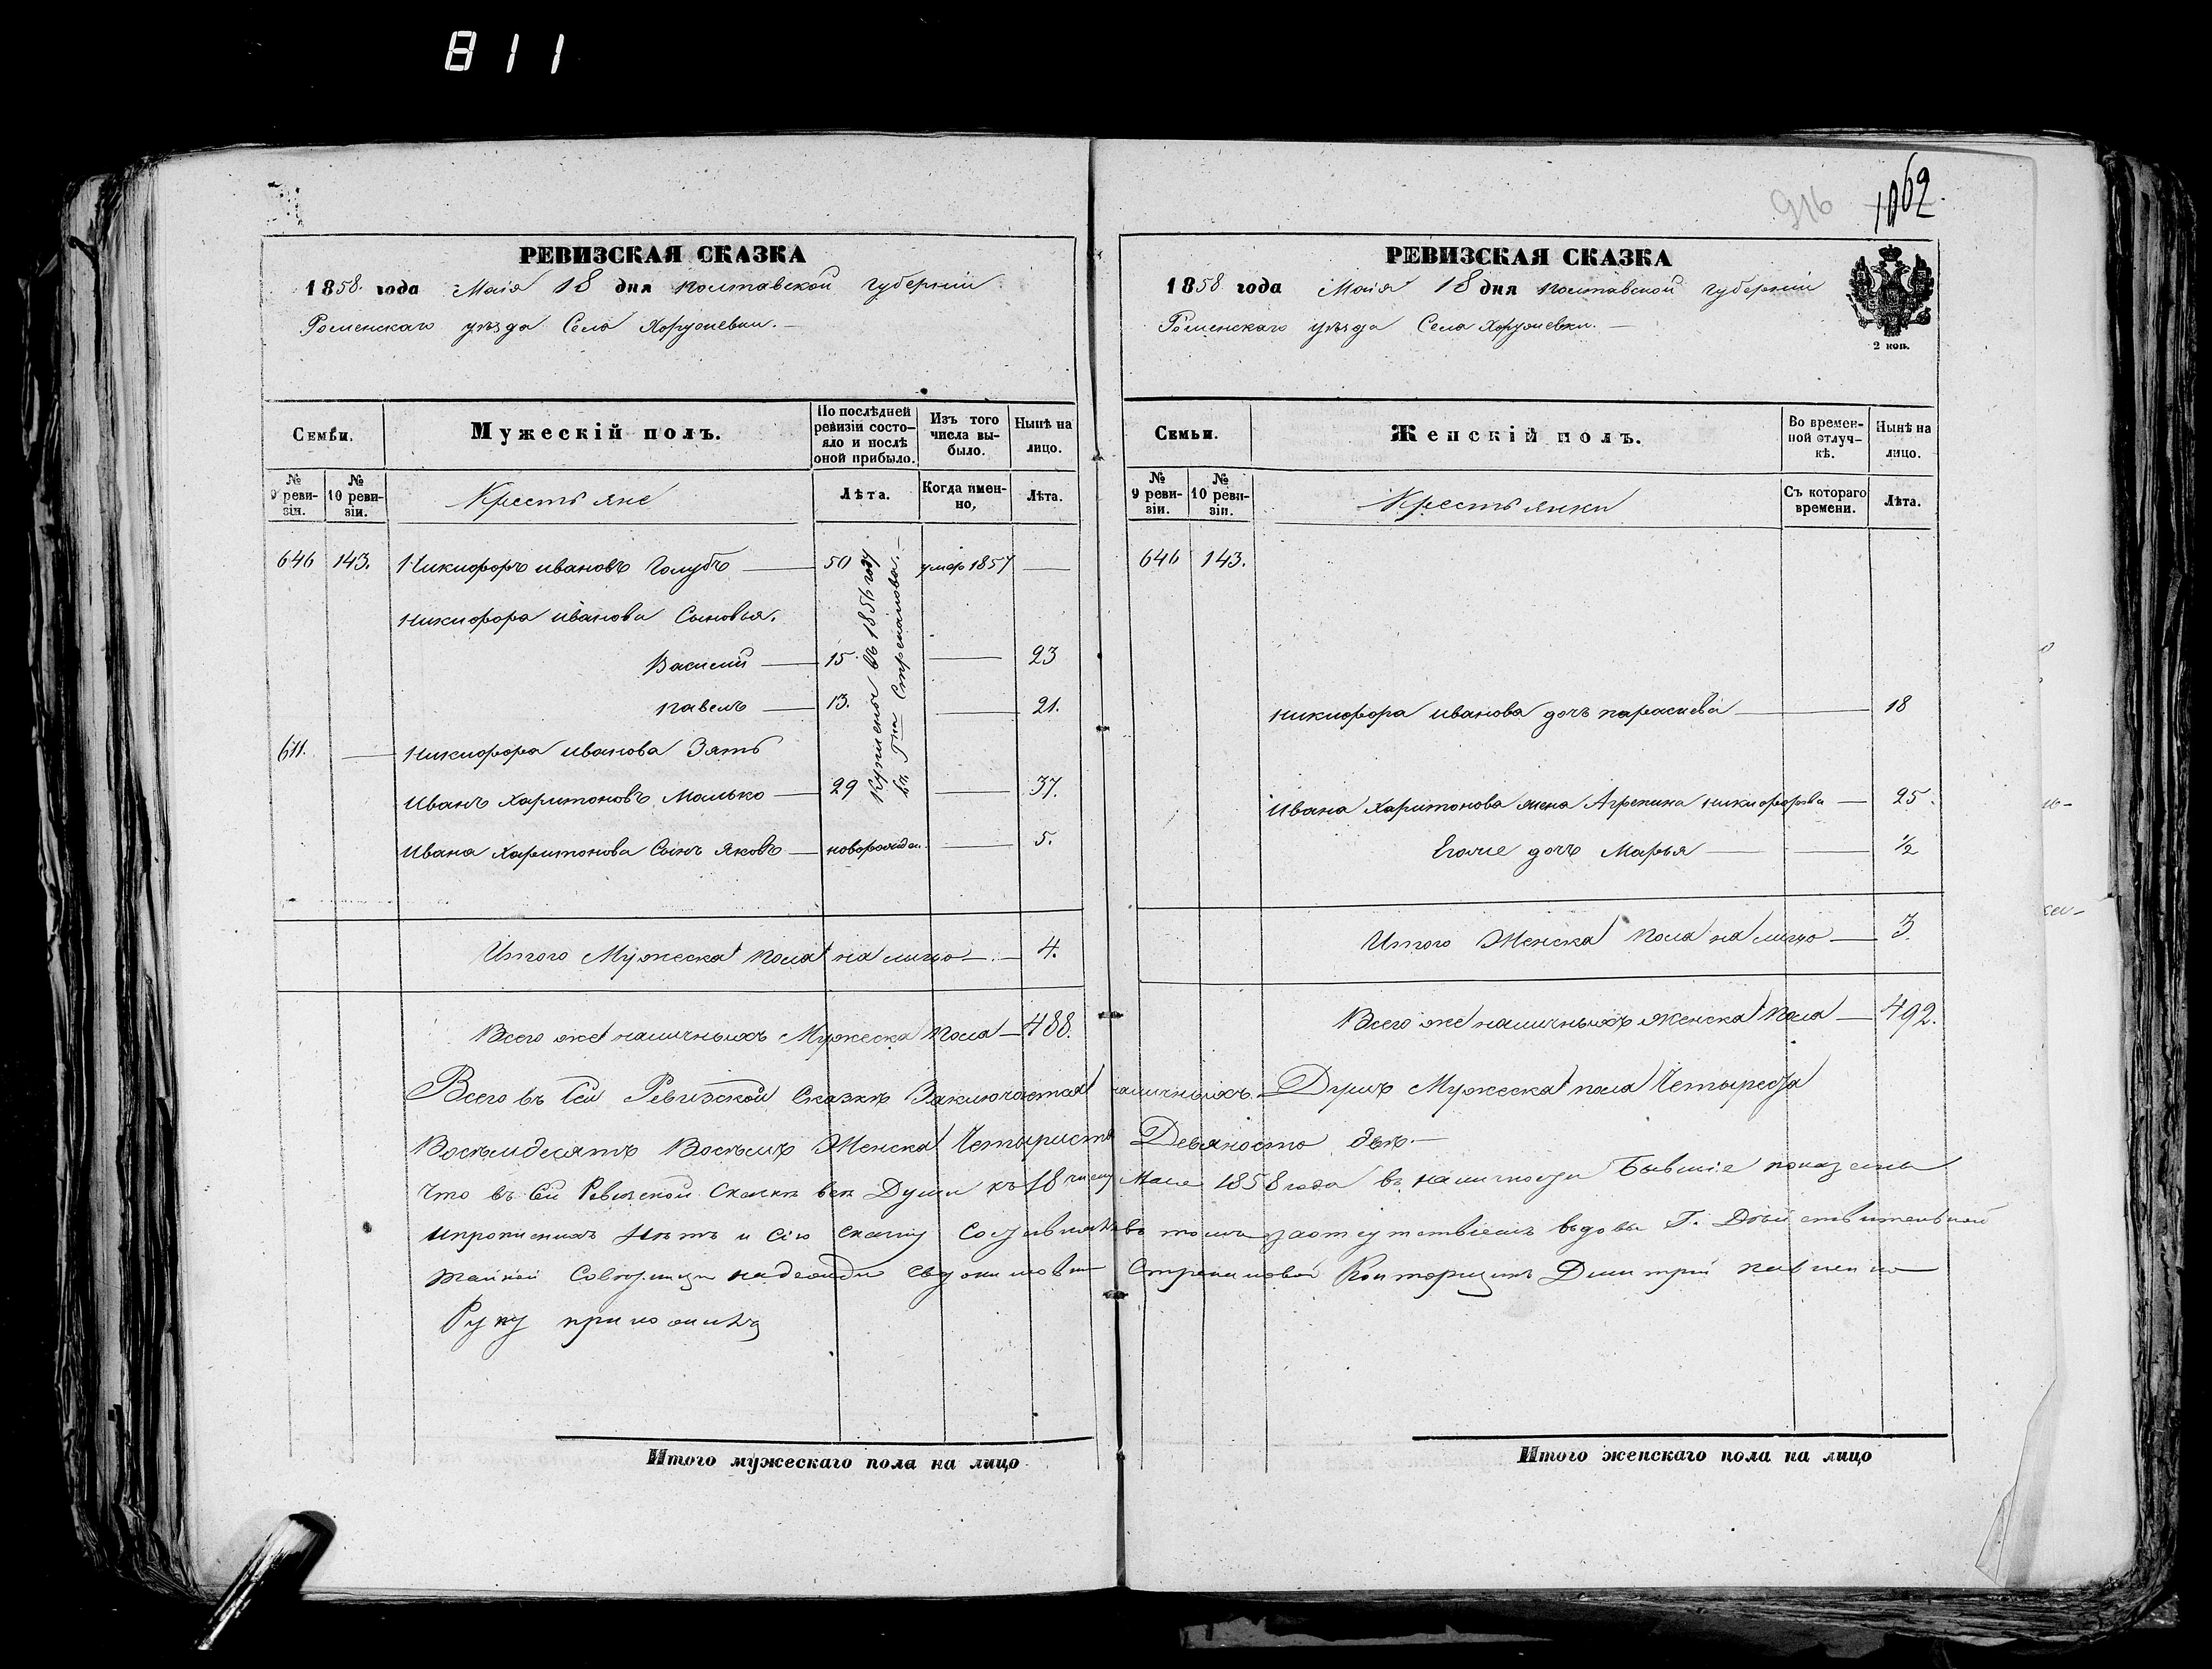 811
РЕВИЗСКАЯ СКАЗКА
1858. года Маія 18 дня Полтавской губерніи
Роменскаго уѣзда Села Хоружевки.
Семьи.
Мужескій полъ.
По послѣдней ревизіи состояло и послѣ оной прибыло.
Изъ того числа выбыло.
Нынѣ на лицо.
№ 9 ревизіи.
№ 10 ревизіи.
Крестьяне
Лѣта.
Когда именно,
Лѣта.
646 143. Никифоръ ивановъ Голубъ 50 умер 1857
Никифора иванова Сыновья.
Василій 15. 23
павелъ 13. 21.
Куплены въ 1856 году
Гна Стремоухова.
611. Никифора иванова Зять
Иванъ Харитоновъ Малько 29 37.
Ивана Харитонова Сынъ Яковъ новорожден. 5.
Итого Мужеска пола на лицо 4.
Всего же наличныхъ Мужеска пола 488.
Итого мужескаго пола на лицо
916
1062.
РЕВИЗСКАЯ СКАЗКА
1858 года Маія 18 дня Полтавской губерніи
Роменскаго уѣзда Села Хоружевки.
2 коп.
Семьи.
Женскій полъ.
Во временной отлучкѣ.
Нынѣ на лицо.
№ 9 ревизіи.
№ 10 ревизіи.
Крестьянки
Съ котораго времени.
Лѣта.
646 143.
Никифора иванова дочь параскева 18
Ивана Харитонова жена Агрепина никифорова 25.
Егоже дочь Марья ½
Итого Женска пола на лицо 3.
Всего же наличныхъ женска пола 492.
Всего въ сей Ревизской Сказкѣ Заключается наличныхъ Душъ Мужеска пола Четыреста
Восемьдесятъ Восемь Женска Четыриста Девяносто двѣ.
Что въ сей Ревизской Сказкѣ всѣ Души къ 18 числу Маія 1858 года въ наличности Бывшіе показаны
и прописныхъ нѣтъ и сію сказку Составилъ въ томъ за отсутствіемъ вдовы Г. Дѣйствительной
тайной Совѣтницы Надежды Стремоуховой Конторщикъ Дмитрій
Руку приложилъ
Итого женскаго пола на лицо